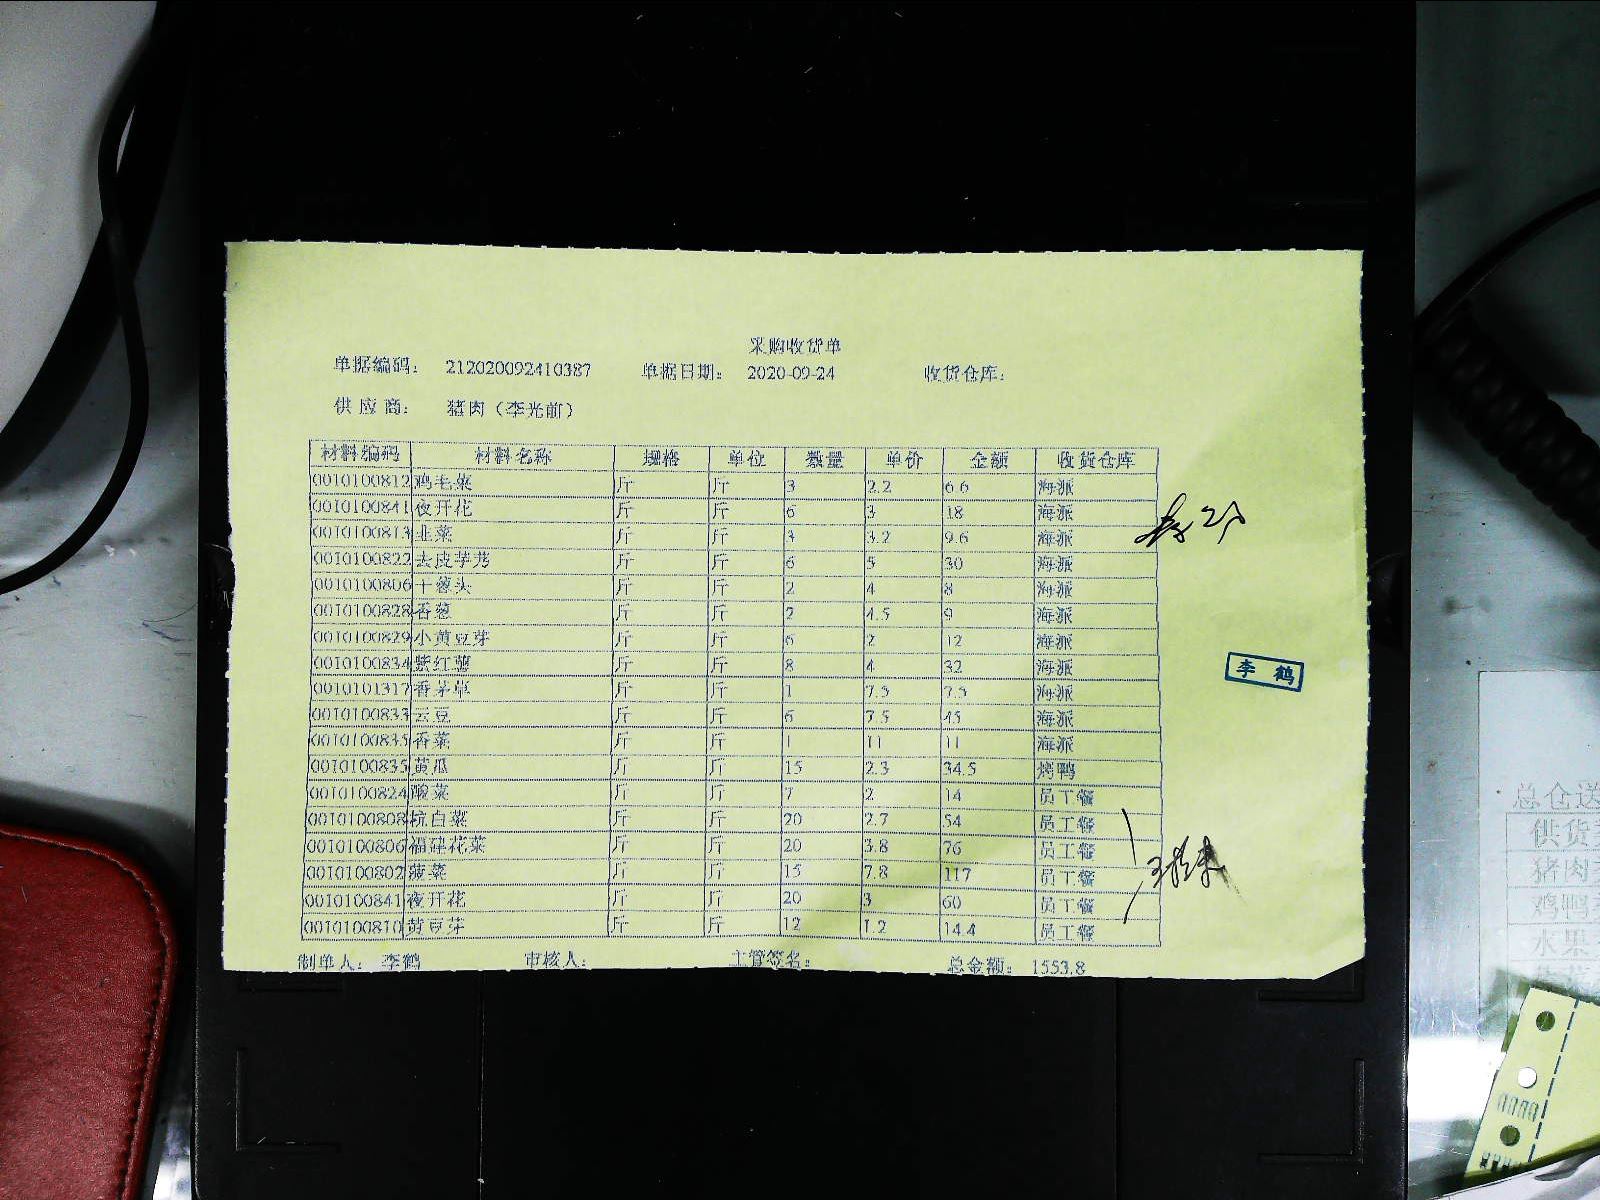 采购收货单
单据编码： 212020092410387 单据日期： 2020-09-24 收货仓库：
供应商： 猪肉（李光前）
材料编码 材料名称 规格 单位 数量 单价 金额 收货仓库
0010100812 鸡毛菜 斤 斤 3 2.2 6.6 海派
0010100841 夜开花 斤 斤 6 3 18 海派
0010100813 韭菜 斤 斤 3 3.2 9.6 海派
0010100822 去皮芋艿 斤 斤 6 5 30 海派
0010100806 干葱头 斤 斤 2 4 8 海派
0010100828 香葱 斤 斤 2 4.5 9 海派
0010100829 小黄豆芽 斤 斤 6 2 12 海派
0010100834 紫红薯 斤 斤 8 4 32 海派
0010101317 香茅草 斤 斤 1 7.5 7.5 海派
0010100833 云豆 斤 斤 6 7.5 45 海派
0010100835 香菜 斤 斤 1 11 11 海派
0010100835 黄瓜 斤 斤 15 2.3 34.5 烤鸭
0010100824 酸菜 斤 斤 7 2 14 员工餐
0010100808 杭白菜 斤 斤 20 2.7 54 员工餐
0010100806 福建花菜 斤 斤 20 3.8 76 员工餐
0010100802 菠菜 斤 斤 15 7.8 117 员工餐
0010100841 夜开花 斤 斤 20 3 60 员工餐
0010100810 黄豆芽 斤 斤 12 1.2 14.4 员工餐
制单人： 李鹤 审核人： 主管签名： 总金额： 1553.8
李 鹤
总仓送
供货
猪肉
鸡鸭
水果